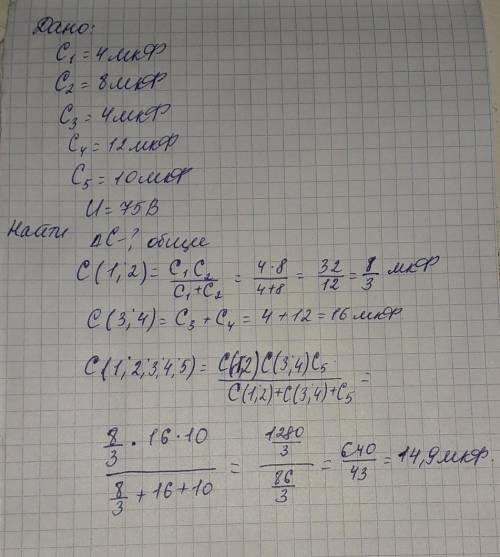 Дано:
C₁ = 4 мкФ
C₂ = 8 мкФ
C₃ = 4 мкФ
C₄ = 12 мкФ
C₅ = 10 мкФ
U = 75 В
Найти ΔC-? общие
C(1,2) = C₁C₂/(C₁+C₂) = 4·8/(4+8) = 32/12 = 8/3 мкФ
C(3,4) = C₃ + C₄ = 4 + 12 = 16 мкФ
C(1,2,3,4,5) = C(1,2)C(3,4)C₅/(C(1,2)+C(3,4)+C₅) =
(8/3 · 16 · 10)/(8/3 + 16 + 10) = (1280/3)/(86/3) = 640/43 = 14,9 мкФ.